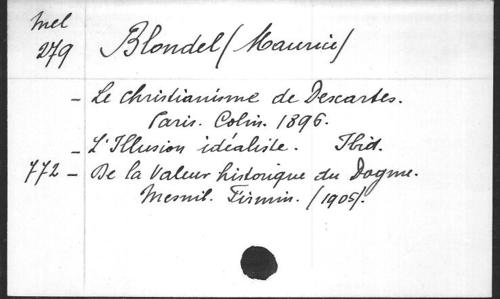 Mel
279 Blondel (Maurice)
- Le Christianisme de Descartes.
Paris. Colin. 1896.
- L'Illusion idéaliste. Ibid.
772 - De la Valeur historique du Dogme.
Mesnil. Firmin. (1905).